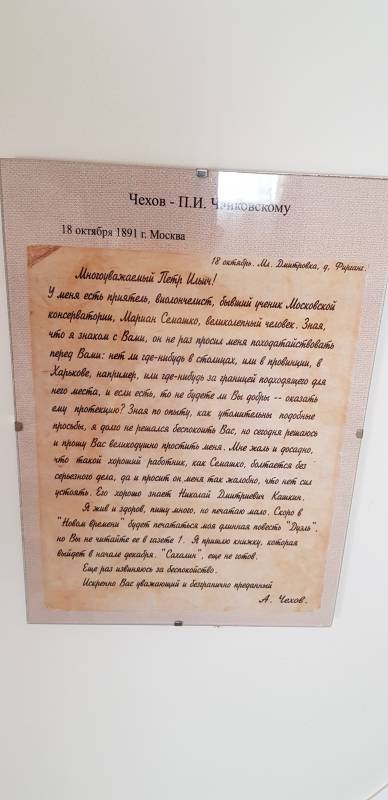 Чехов - П.И. Чайковскому
18 октября 1891 г. Москва
18 октябрь. Мл. Дмитровка, д. Фирганг.
Многоуважаемый Петр Ильич!
У меня есть приятель, виолончелист, бывший ученик Московской
консерватории, Мариан Семашко, великолепный человек. Зная,
что я знаком с Вами, он не раз просил меня походатайствовать
перед Вами: нет ли где-нибудь в столицах, или в провинции, в
Харькове, например, или где-нибудь за границей подходящего для
него места, и если есть, то не будете ли Вы добры -- оказать
ему протекцию? Зная по опыту, как утомительны подобные
просьбы, я долго не решался беспокоить Вас, но сегодня решаюсь
и прошу Вас великодушно простить меня. Мне жаль и досадно,
что такой хороший работник, как Семашко, болтается без
серьезного дела, да и просит он меня так жалобно, что нет сил
устоять. Его хорошо знает Николай Дмитриевич Кашкин.
Я жив и здоров, пишу много, но печатаю мало. Скоро в
"Новом времени" будет печататься моя длинная повесть "Дуэль",
но Вы не читайте ее в газете 1. Я пришлю книжку, которая
выйдет в начале декабря. "Сахалин", еще не готов.
Еще раз извиняюсь за беспокойство.
Искренно Вас уважающий и безгранично преданный
А. Чехов.